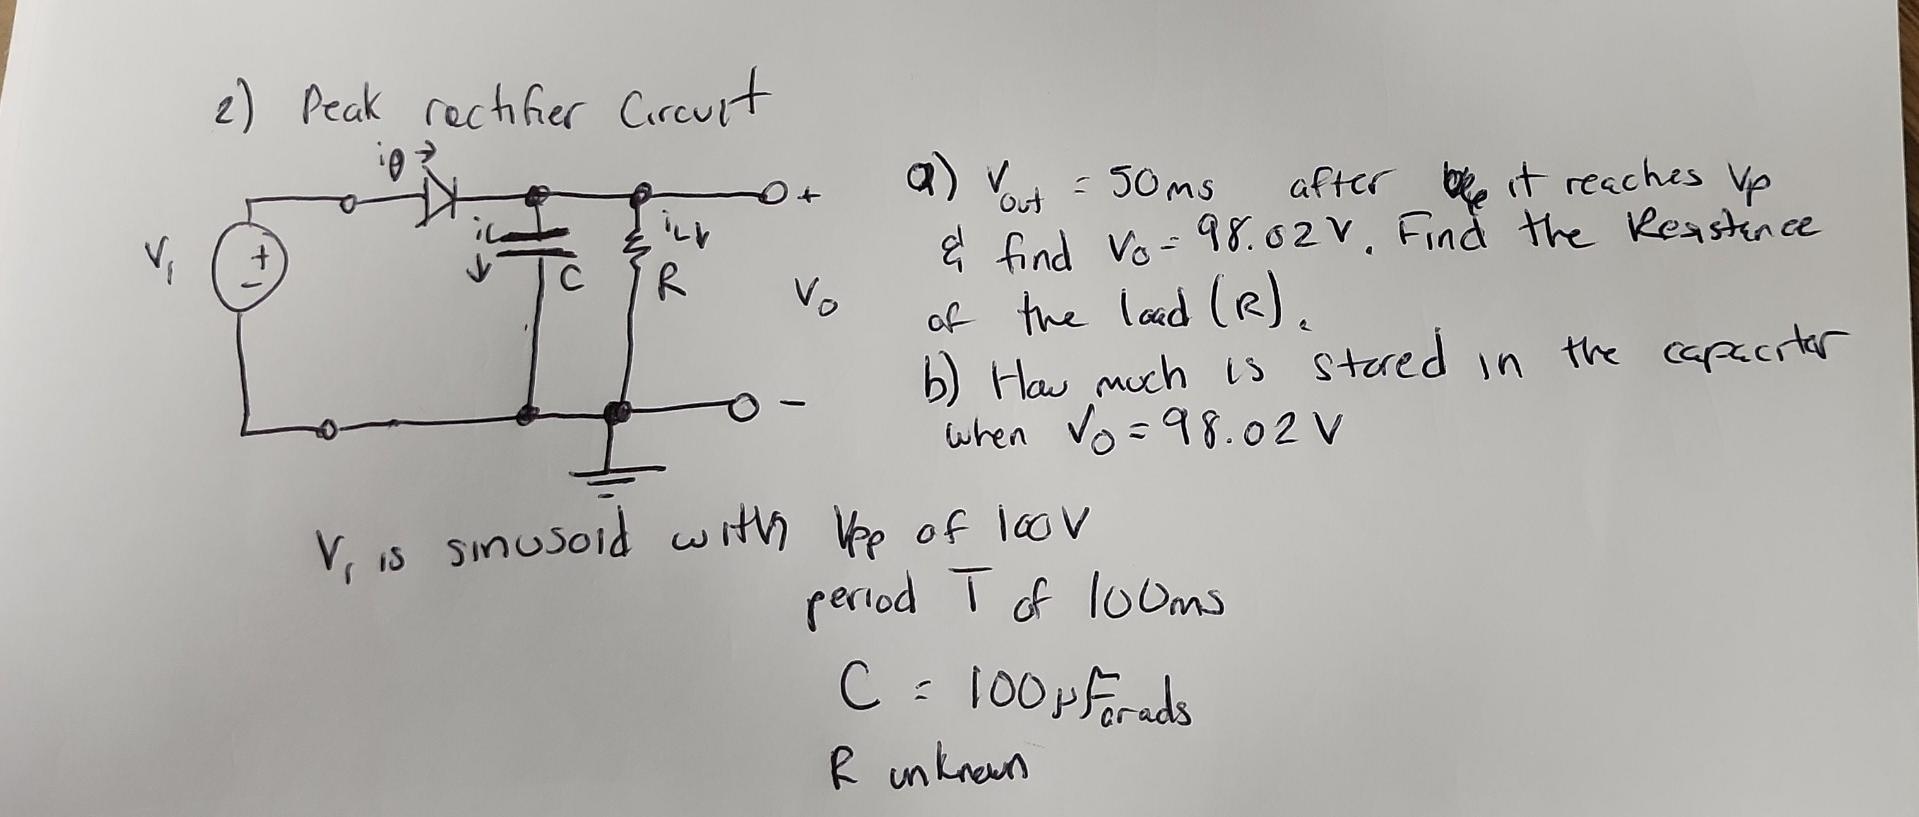 2) Peak rectifier Circuit
iD →
V1
+
-
ic ↓
C
iL↓
R
+
Vo
-
a) Vout = 50ms after it reaches Vp
& find Vo = 98.02V. Find the Resistence
of the load (R).
b) How much is stored in the capacitor
when Vo = 98.02 V
V1 is sinusoid with Vpp of 100V
period T of 100ms
C = 100μFarads
R unknown